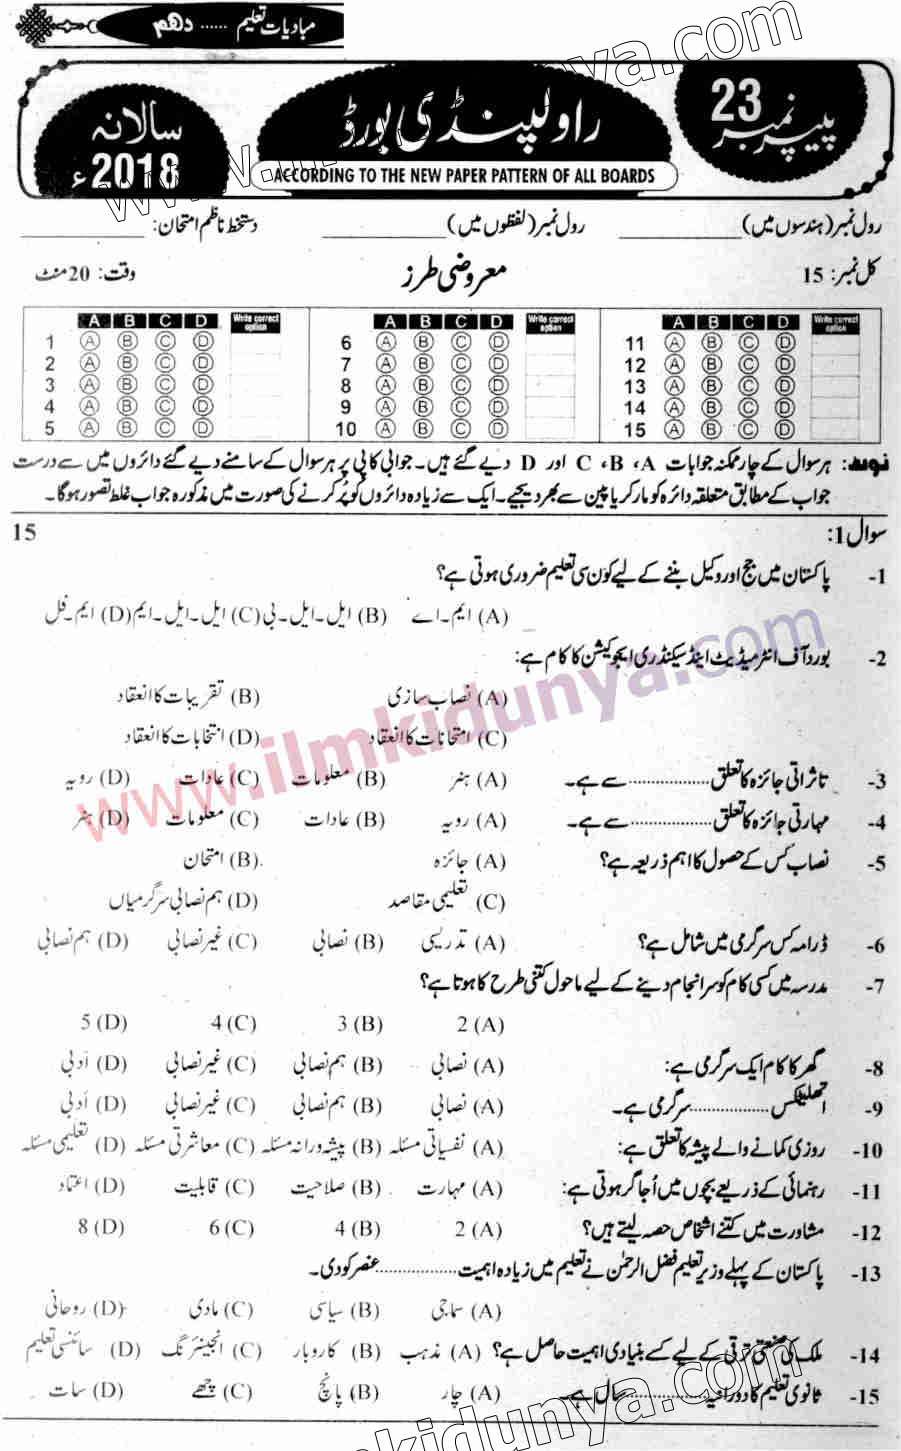 مبادیات تعلیم ...... دہم
سالانہ 2018ء
راولپنڈی بورڈ
پیپر نمبر 23
ACCORDING TO THE NEW PAPER PATTERN OF ALL BOARDS
رول نمبر (ہندسوں میں) ____________ رول نمبر (لفظوں میں) ____________ دستخط ناظم امتحان: ____________
کل نمبر: 15 معروضی طرز وقت: 20 منٹ
A B C D Write correct option A B C D Write correct option A B C D Write correct option
1 A B C D 6 A B C D 11 A B C D
2 A B C D 7 A B C D 12 A B C D
3 A B C D 8 A B C D 13 A B C D
4 A B C D 9 A B C D 14 A B C D
5 A B C D 10 A B C D 15 A B C D
نوٹ: ہر سوال کے چار ممکنہ جوابات A، B، C اور D دیے گئے ہیں۔ جوابی کاپی پر ہر سوال کے سامنے دیے گئے دائروں میں سے درست
جواب کے مطابق متعلقہ دائرہ کو مارکر یا پین سے بھر دیجیے۔ ایک سے زیادہ دائروں کو پُر کرنے کی صورت میں مذکورہ جواب غلط تصور ہوگا۔
سوال 1: 15
1- پاکستان میں جج اور وکیل بننے کے لیے کون سی تعلیم ضروری ہوتی ہے؟
(A) ایم۔اے (B) ایل۔ایل۔بی (C) ایل۔ایل۔ایم (D) ایم۔فل
2- بورڈ آف انٹرمیڈیٹ اینڈ سیکنڈری ایجوکیشن کا کام ہے:
(A) نصاب سازی (B) تقریبات کا انعقاد
(C) امتحانات کا انعقاد (D) انتخابات کا انعقاد
3- تاثراتی جائزہ کا تعلق .................. سے ہے۔ (A) ہنر (B) معلومات (C) عادات (D) رویہ
4- مہارتی جائزہ کا تعلق .................. سے ہے۔ (A) رویہ (B) عادات (C) معلومات (D) ہنر
5- نصاب کس کے حصول کا اہم ذریعہ ہے؟ (A) جائزہ (B) امتحان
(C) تعلیمی مقاصد (D) ہم نصابی سرگرمیاں
6- ڈرامہ کس سرگرمی میں شامل ہے؟ (A) تدریسی (B) نصابی (C) غیر نصابی (D) ہم نصابی
7- مدرسہ میں کسی کام کو سرانجام دینے کے لیے ماحول کتنی طرح کا ہوتا ہے؟
(A) 2 (B) 3 (C) 4 (D) 5
8- گھر کا کام ایک سرگرمی ہے: (A) نصابی (B) ہم نصابی (C) غیر نصابی (D) ادبی
9- اتھلیٹکس .................. سرگرمی ہے۔ (A) نصابی (B) ہم نصابی (C) غیر نصابی (D) ادبی
10- روزی کمانے والے پیشہ کا تعلق ہے: (A) نفسیاتی مسئلہ (B) پیشہ ورانہ مسئلہ (C) معاشرتی مسئلہ (D) تعلیمی مسئلہ
11- رہنمائی کے ذریعے بچوں میں اُجاگر ہوتی ہے: (A) مہارت (B) صلاحیت (C) قابلیت (D) اعتماد
12- مشاورت میں کتنے اشخاص حصہ لیتے ہیں؟ (A) 2 (B) 4 (C) 6 (D) 8
13- پاکستان کے پہلے وزیر تعلیم فضل الرحمٰن نے تعلیم میں زیادہ اہمیت .................. عنصر کو دی۔
(A) سماجی (B) سیاسی (C) مادی (D) روحانی
14- ملک کی صنعتی ترقی کے لیے کسے بنیادی اہمیت حاصل ہے؟ (A) مذہب (B) کاروبار (C) انجینئرنگ (D) سائنسی تعلیم
15- ثانوی تعلیم کا دورانیہ .................. سال ہے۔ (A) چار (B) پانچ (C) چھے (D) سات
www.ilmkidunya.com